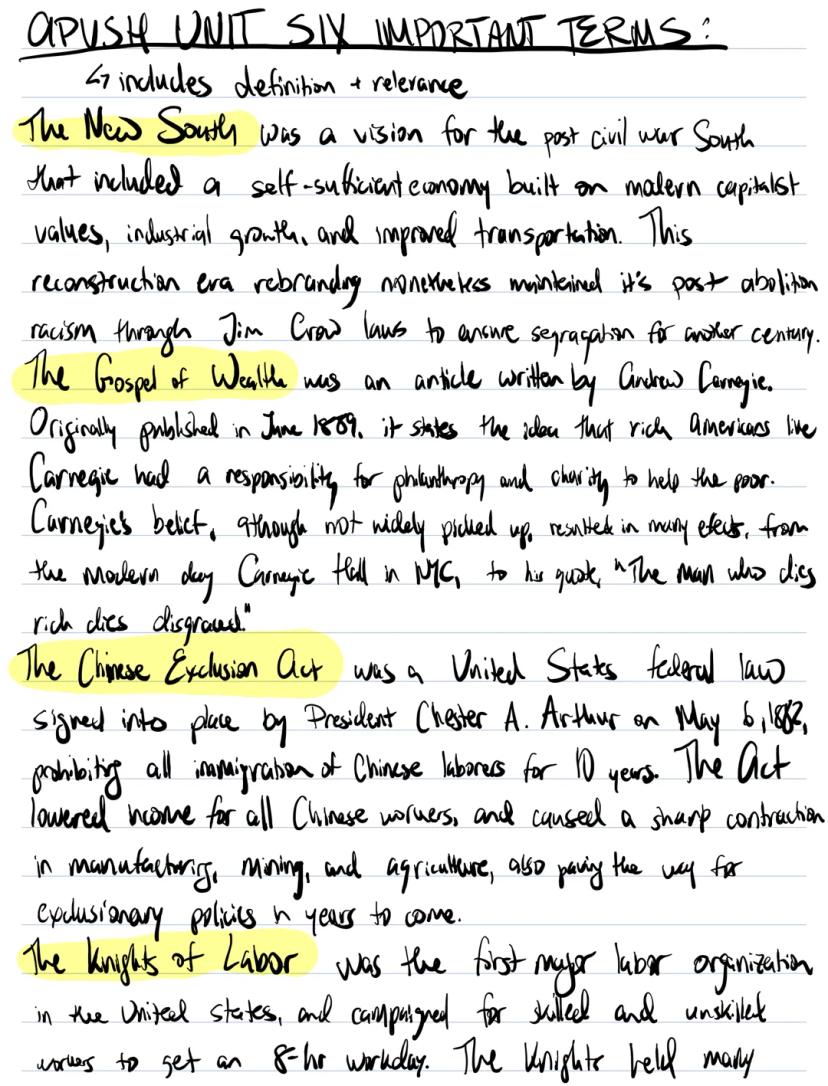 APUSH UNIT SIX IMPORTANT TERMS:
↳ includes definition + relevance
The New South was a vision for the post civil war South
that included a self-sufficient economy built on modern capitalist
values, industrial growth, and improved transportation. This
reconstruction era rebranding nonetheless maintained it's post abolition
racism through Jim Crow laws to ensure segragation for another century.
The Gospel of Wealth was an article written by Andrew Carnegie.
Originally published in June 1889, it states the idea that rich Americans like
Carnegie had a responsibility for philanthropy and charity to help the poor.
Carnegie's belief, although not widely picked up, resulted in many effects, from
the modern day Carnegie Hall in NYC, to his quote, "The man who dies
rich dies disgraced."
The Chinese Exclusion Act was a United States federal law
signed into place by President Chester A. Arthur on May 6, 1882,
prohibiting all immigration of Chinese laborers for 10 years. The Act
lowered income for all Chinese workers, and caused a sharp contraction
in manufacturing, mining, and agriculture, also paving the way for
exclusionary policies in years to come.
The Knights of Labor was the first major labor organization
in the United States, and campaigned for skilled and unskilled
workers to get an 8-hr workday. The Knights held many